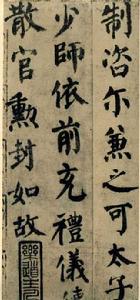 制咨尔兼之可太子
少師依前充禮儀使
散官勳封如故